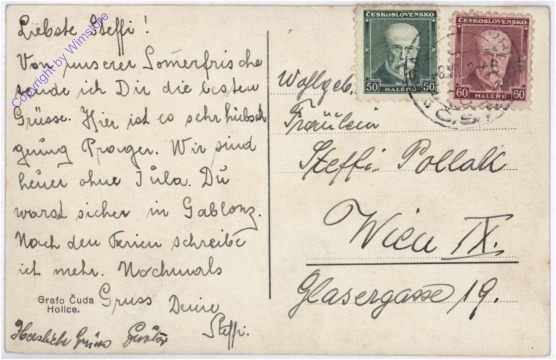 Liebste Steffi!
Von unserer Somerfrische
sende ich Dir die besten
Grüsse. Hier ist es sehr hübsch
genug Prager. Wir sind
heuer ohne Jula. Du
warst sicher in Gablonz.
Nach den Ferien schreibe
ich mehr. Nochmals
Gruss Deine
Steffi.
Herzliche Grüsse Gustav
Grafo Čuda
Holice.
Copyright by Wimslope
ČESKOSLOVENSKO
50 50
HALÉŘŮ
ČESKOSLOVENSKO
60 60
HALÉŘŮ
Č.S.
Wohlgeb.
Fräulein
Steffi Pollak
Wien IX.
Glasergasse 19.